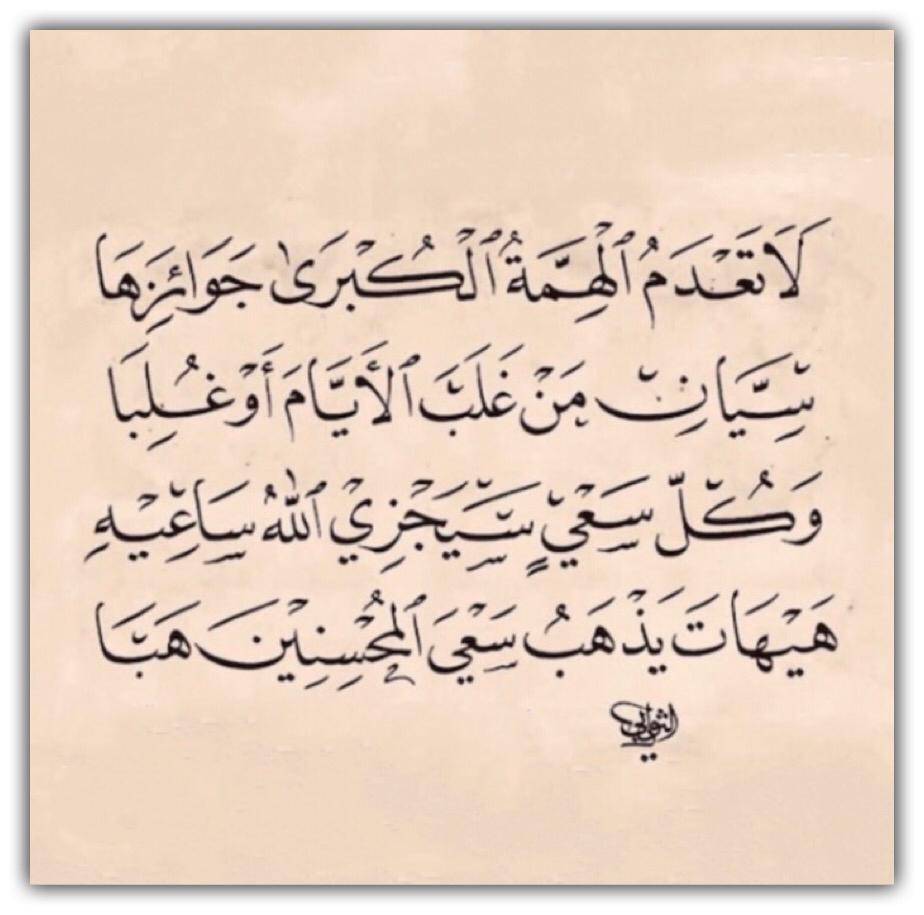 لَا تَعْدَمُ ٱلْهِمَّةُ ٱلْكُبْرَىٰ جَوَائِزَهَا
سِيَّانِ مَنْ غَلَبَ ٱلْأَيَّامَ أَوْ غُلِبَا
وَكُلُّ سَعْيٍ سَيَجْزِي ٱللهُ سَاعِيْهِ
هَيْهَاتَ يَذْهَبُ سَعْيَ ٱلْمُحْسِنِيْنَ هَبَا